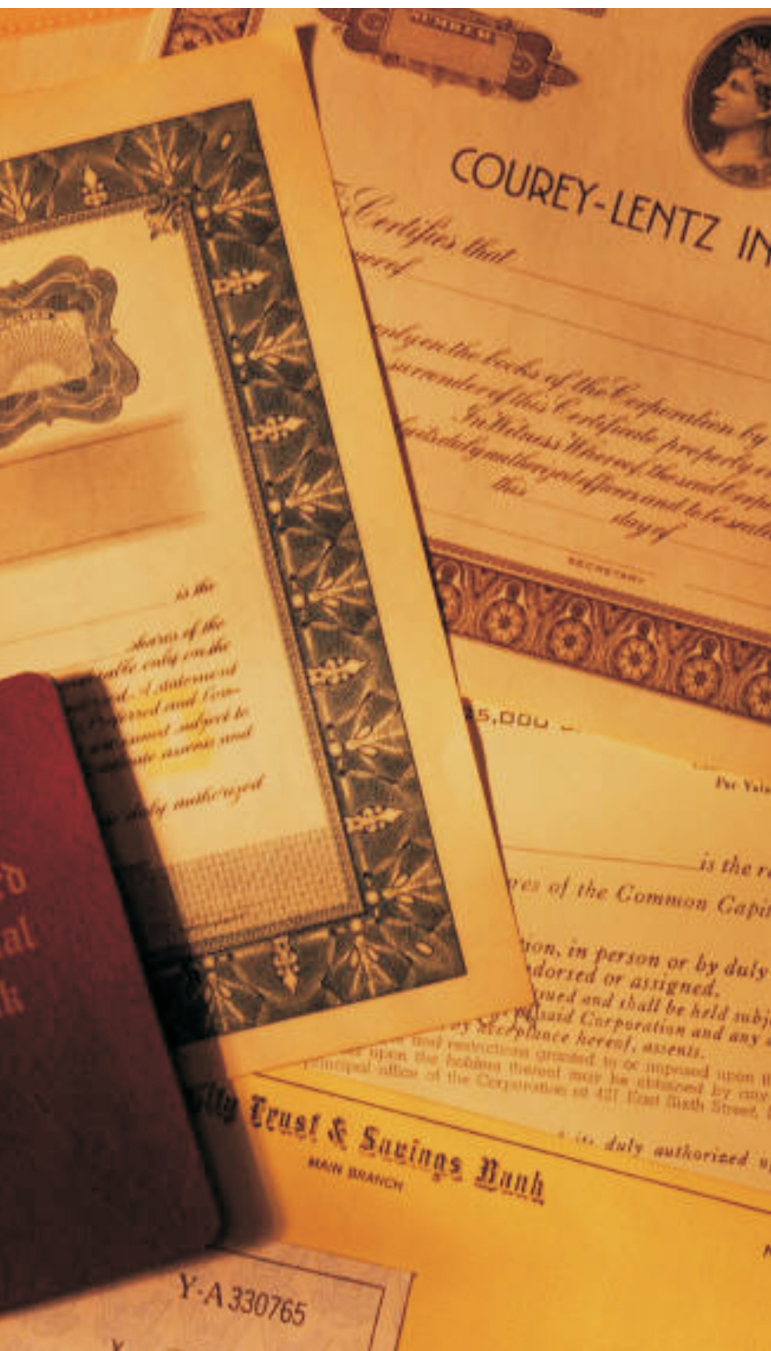 NUMBER
COUREY-LENTZ IN
Certifies that
only on the books of the Corporation by
surrender of this Certificate properly
In Witness Whereof, the said Corp
its duly authorized officers and to be sealed
this day of
SECRETARY
is the
shares of the
able only on the
A statement
Preferred and Com-
subject to
assents and
duly authorized
5,000
Par Valu
is the r
res of the Common Capit
ion, in person or by duly
dorsed or assigned.
sued and shall be held subj
said Corporation and any
by acceptance hereof, assents.
and restrictions granted to or imposed upon th
upon the holders thereof may be obtained by any
principal office of the Corporation at 421 East Sixth Street,
its duly authorized
ed
al
k
ity Trust & Savings Bank
MAIN BRANCH
Y-A 330765